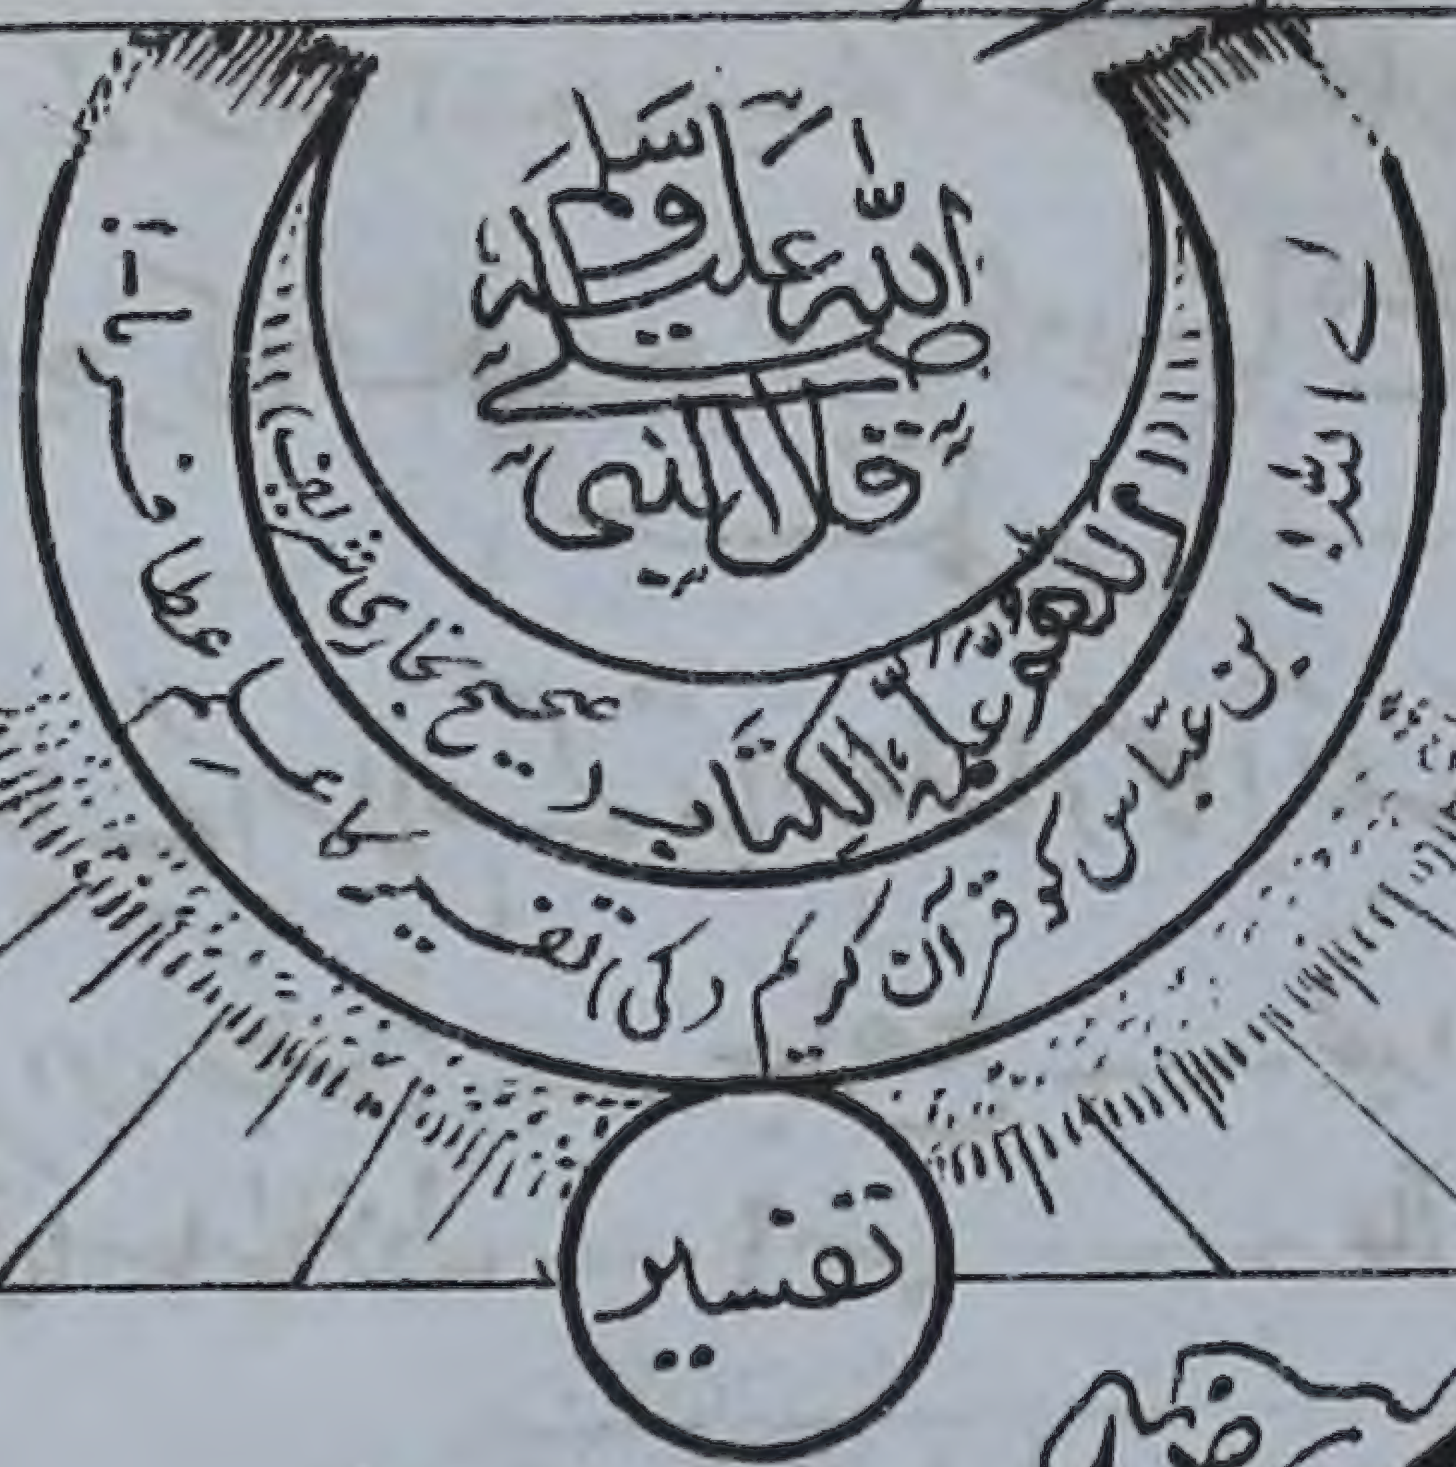 قَالَ النَّبِيُّ
صَلَّى اللّٰهُ عَلَيْهِ وَآلِهٖ وَسَلَّمَ
اَللّٰهُمَّ عَلِّمْهُ الْكِتَابَ (صحیح بخاری شریف)
اے اللہ! ابن عباس کو قرآن کریم (کی) تفسیر کا علم عطا فرما۔!
تفسیر